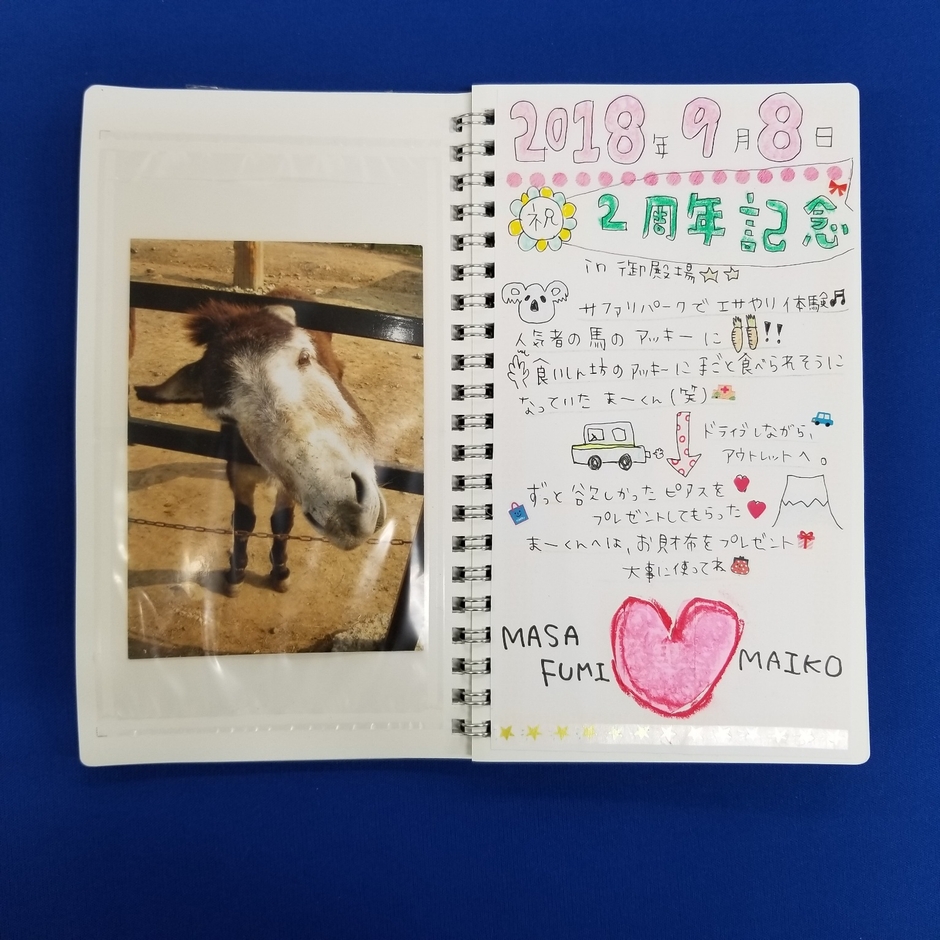 2018年9月8日
祝 2周年記念
in 御殿場
サファリパークでエサやり体験
人気者の馬のアッキーに!!
食いしん坊のアッキーに手ごと食べられそうに
なっていたまーくん(笑)
ドライブしながら、
アウトレットへ。
ずっと欲しかったピアスを
プレゼントしてもらった
まーくんへは、お財布をプレゼント
大事に使ってね
MASA
FUMI
MAIKO